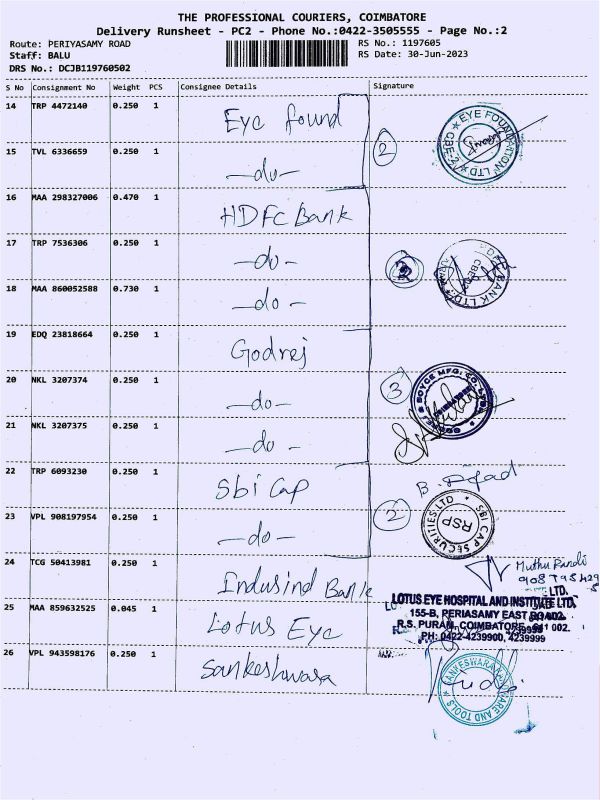 THE PROFESSIONAL COURIERS, COIMBATORE
Delivery Runsheet - PC2 - Phone No.:0422-3505555 - Page No.:2
Route: PERIYASAMY ROAD
Staff: BALU
DRS No.: DCJB119760502
RS No.: 1197605
RS Date: 30-Jun-2023
S No Consignment No Weight PCS Consignee Details Signature
14 TRP 4472140 0.250 1 Eye found
15 TVL 6336659 0.250 1 -do-
2
EYE FOUNDATION LTD CBE-2
16 MAA 298327006 0.470 1 HDFC Bank
17 TRP 7536306 0.250 1 -do-
18 MAA 860052588 0.730 1 -do-
BANK LTD.
19 EDQ 23818664 0.250 1 Godrej
20 NKL 3207374 0.250 1 -do-
21 NKL 3207375 0.250 1 -do-
3
BOYCE MFG. CO.
22 TRP 6093230 0.250 1 Sbi Cap
23 VPL 908197954 0.250 1 -do-
2
SBI CAP SECURITIES LTD
RSP
24 TCG 50413981 0.250 1 Indusind Bank
Muthu Pandi
LTD.
25 MAA 859632525 0.045 1 Lotus Eye
LOTUS EYE HOSPITAL AND INSTITUTE LTD,
155-B, PERIASAMY EAST ROAD
R.S. PURAM, COIMBATORE - 641 002.
PH: 0422-4239900, 4239999
26 VPL 943598176 0.250 1 Sankeshwara
AND TOOLS